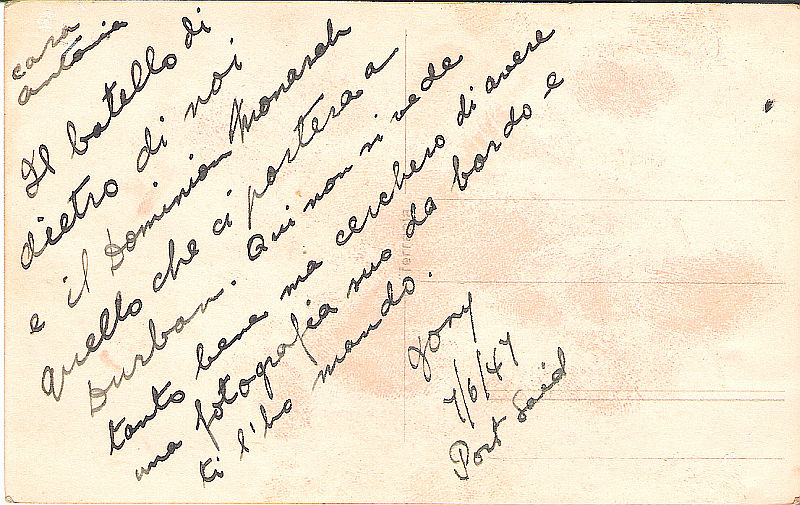 cara
antonia
Il batello di
dietro di noi
e il Dominion Monarch
quello che ci portera a
Durban. Qui non si vede
tanto bene ma cerchero di avere
una fotografia suo da bordo e
ti l'ho mando.
Tony
7/6/47
Port Said
ferrania